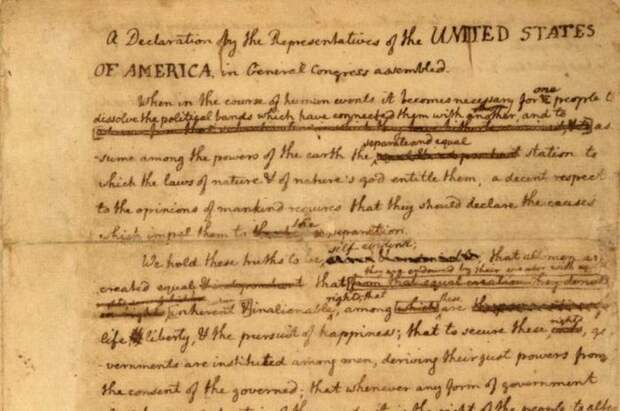 A Declaration by the Representatives of the UNITED STATES
OF AMERICA, in General Congress assembled.
When in the course of human events it becomes necessary for one people to
dissolve the political bands which have connected them with another, and to
as
separate and equal
sume among the powers of the earth the station to
which the laws of nature & of nature's god entitle them, a decent respect
to the opinions of mankind requires that they should declare the causes
which impel them to the separation.
self evident;
We hold these truths to be that all men are
they are endowed by their creator with
created equal & independent that from that equal creation they derive
rights, that these
inherent & inalienable among which are
rights
life & liberty, & the pursuit of happiness; that to secure these ge
vernments are instituted among men, deriving their just powers from
the consent of the governed; that whenever any form of government
it is the right of the people to alter